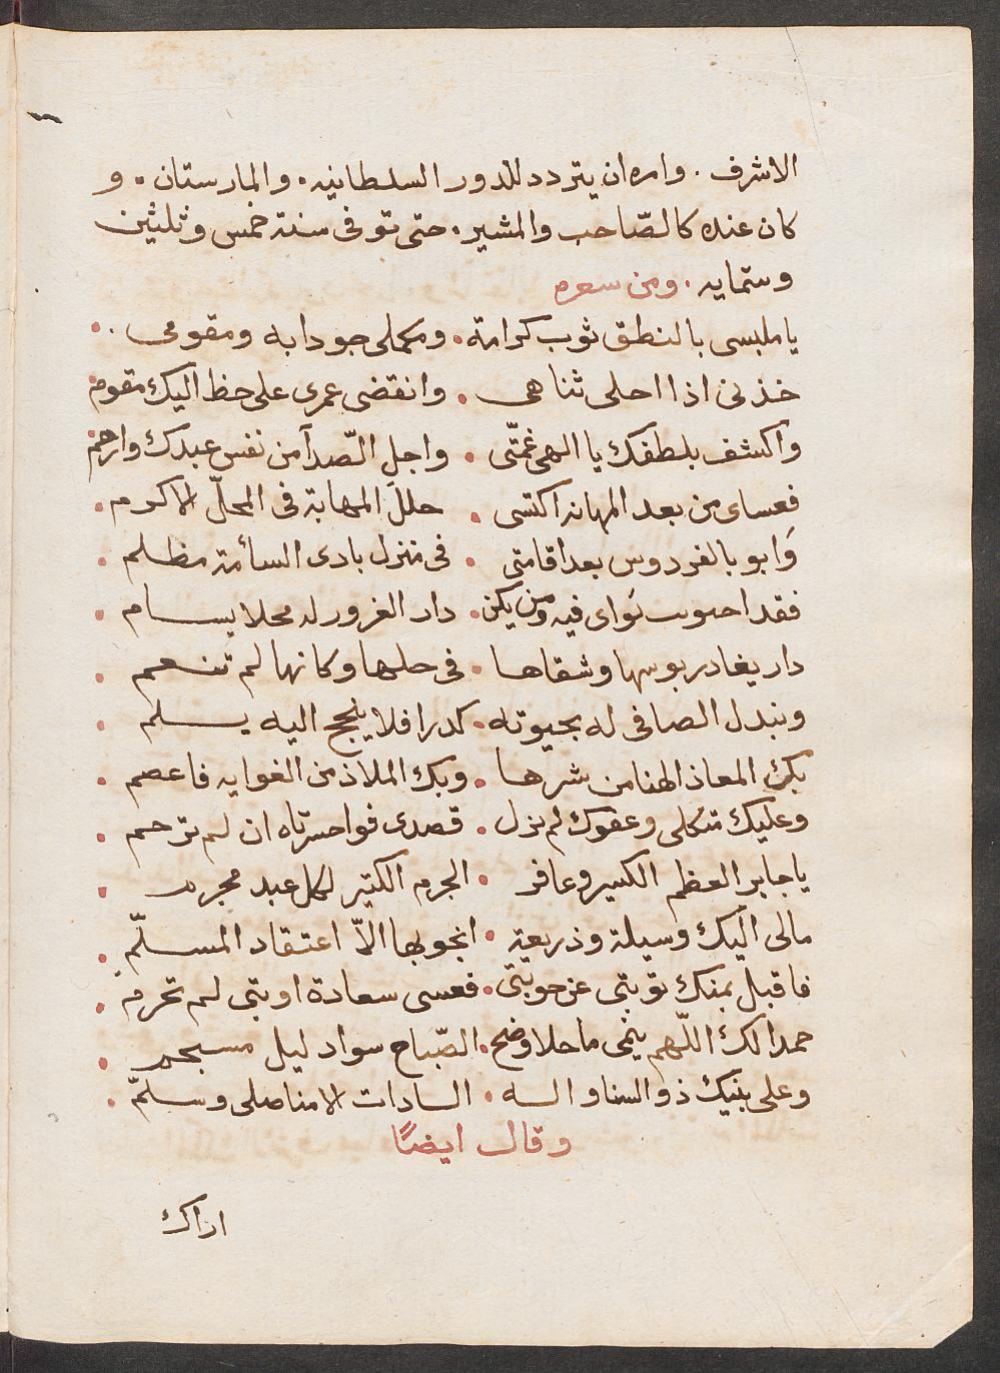 الاشرف . وامره ان يتردد للدور السلطانيه . والمارستان . و
كان عنده كالصّاحب والمشير . حتى توفى سنة خمس وثلثين
وستمايه . ومن سعره
يا ملبسى بالنطق ثوب كرامة . ومكملى جودا به ومقومى .
خذنى اذا احلى تناهى . وانقضى عمرى على حظ اليك مقوم
واكشف بلطفك يا الهى غمّتى . واجل الصّدآ من نفس عبدك وارحم
فعساى من بعد المهانه اكتسى . حلل المهابة فى المحلّ الاكرم .
وَابو بالفردوس بعد اقامتى . فى منزل بادى السأمة مظلم .
فقد احىوىت ثواى فيه ومن يكن . دار الغرور له محلا يسام .
دار يغادر بوسها وشقاها . فى حلها وكانها لم تنعم .
وىبدل الصافى له بحيوته . كدرا فلا يلجج اليه يسلم .
بك المعاذ الهنا من شرها . وبك الملاذ من الغوايه فاعصم .
وعليك متكلى وعفوك لم يزل . قصدى فواحسرتاه ان لم ترحم .
يا جابر العظم الكسير وعافر . الجرم الكثير لكل عبد مجرم .
مالى اليك وسيلة وذريعة . انجو بها الاّ اعتقاد المسلّم .
فاقبل بمنك توبتى عن حوبتى . فعسى سعادة اوبتى لم تحرم .
حمدا لك اللّهم ينمى ما حلا وضح . الصّباح سواد ليل مسحم .
وعلى بنيك ذو السنا واله . السادات الامنا صلى وسلمّ .
وقال ايضًا
اراك